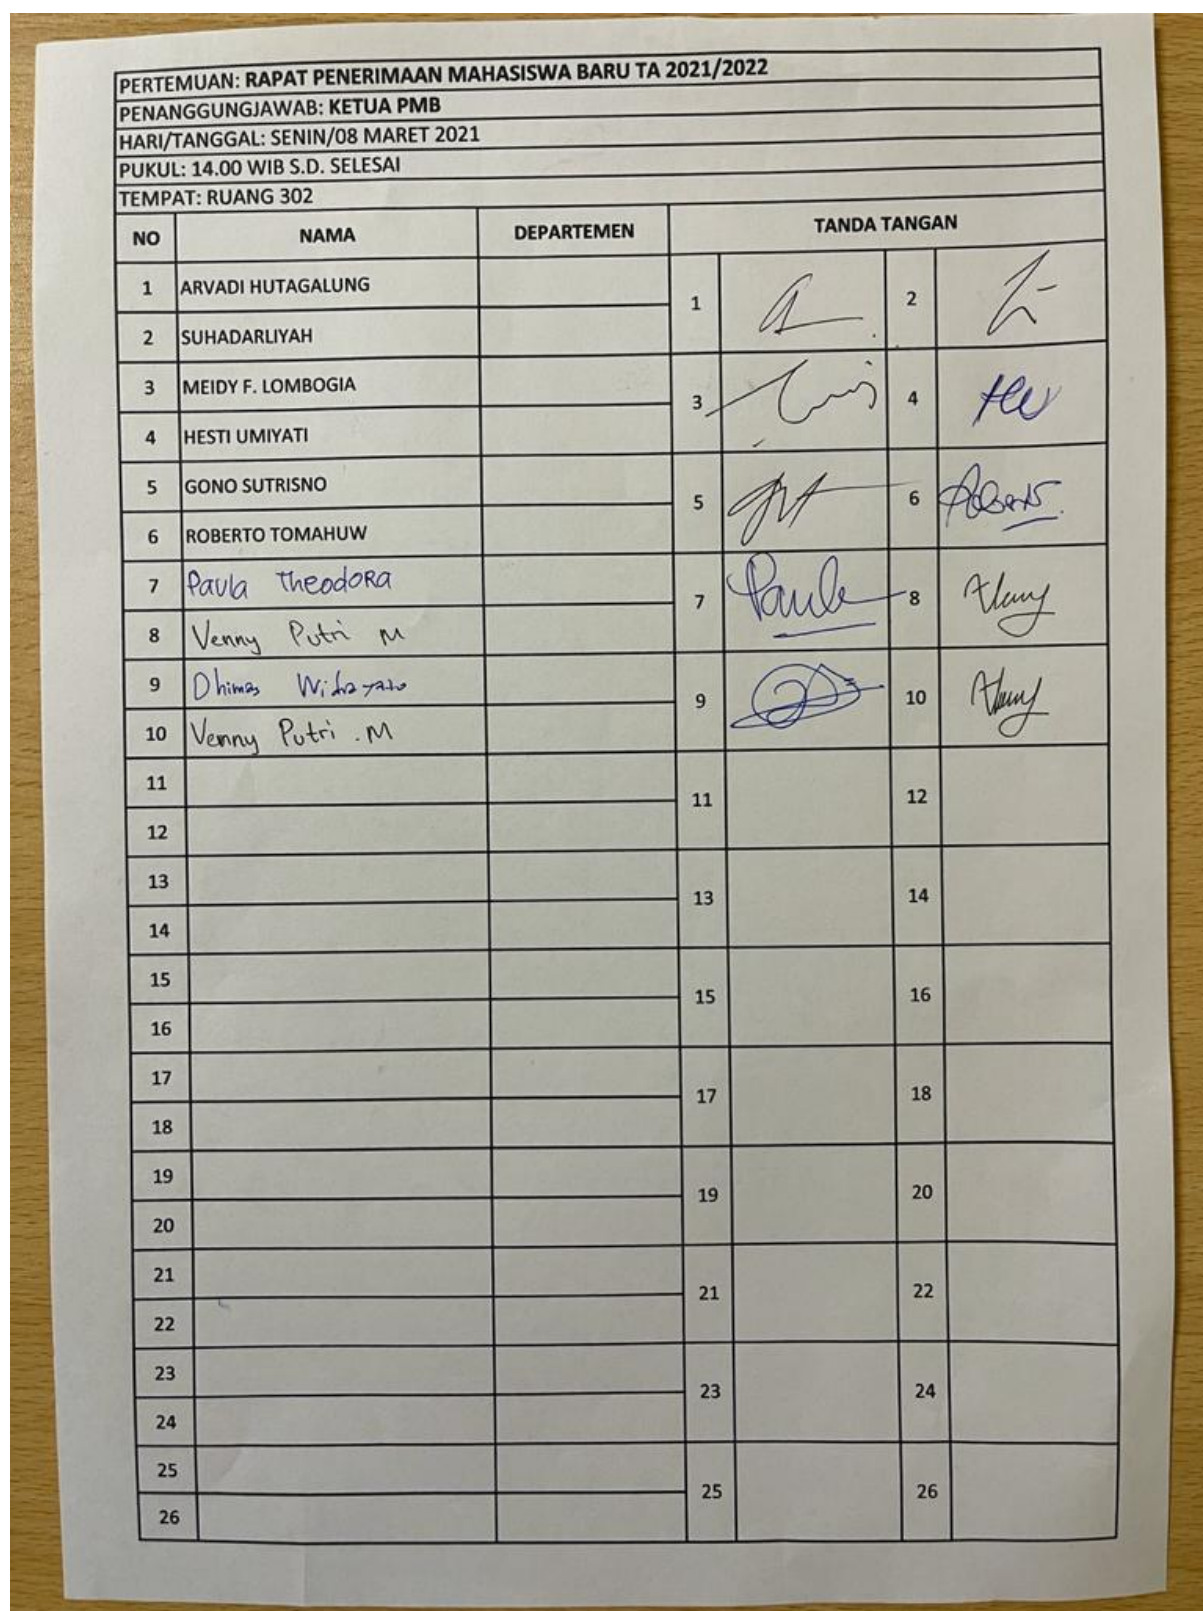 PERTEMUAN: RAPAT PENERIMAAN MAHASISWA BARU TA 2021/2022
PENANGGUNGJAWAB: KETUA PMB
HARI/TANGGAL: SENIN/08 MARET 2021
PUKUL: 14.00 WIB S.D. SELESAI
TEMPAT: RUANG 302
NO NAMA DEPARTEMEN TANDA TANGAN
1 ARVADI HUTAGALUNG
1 2
2 SUHADARLIYAH
3 MEIDY F. LOMBOGIA
3 4
4 HESTI UMIYATI
5 GONO SUTRISNO
5 6
6 ROBERTO TOMAHUW
7 Paula Theodora
7 Paula 8
8 Venny Putri M
9 Dhimas
9 10
10 Venny Putri . M
11
11 12
12
13
13 14
14
15
15 16
16
17
17 18
18
19
19 20
20
21
21 22
22
23
23 24
24
25
25 26
26